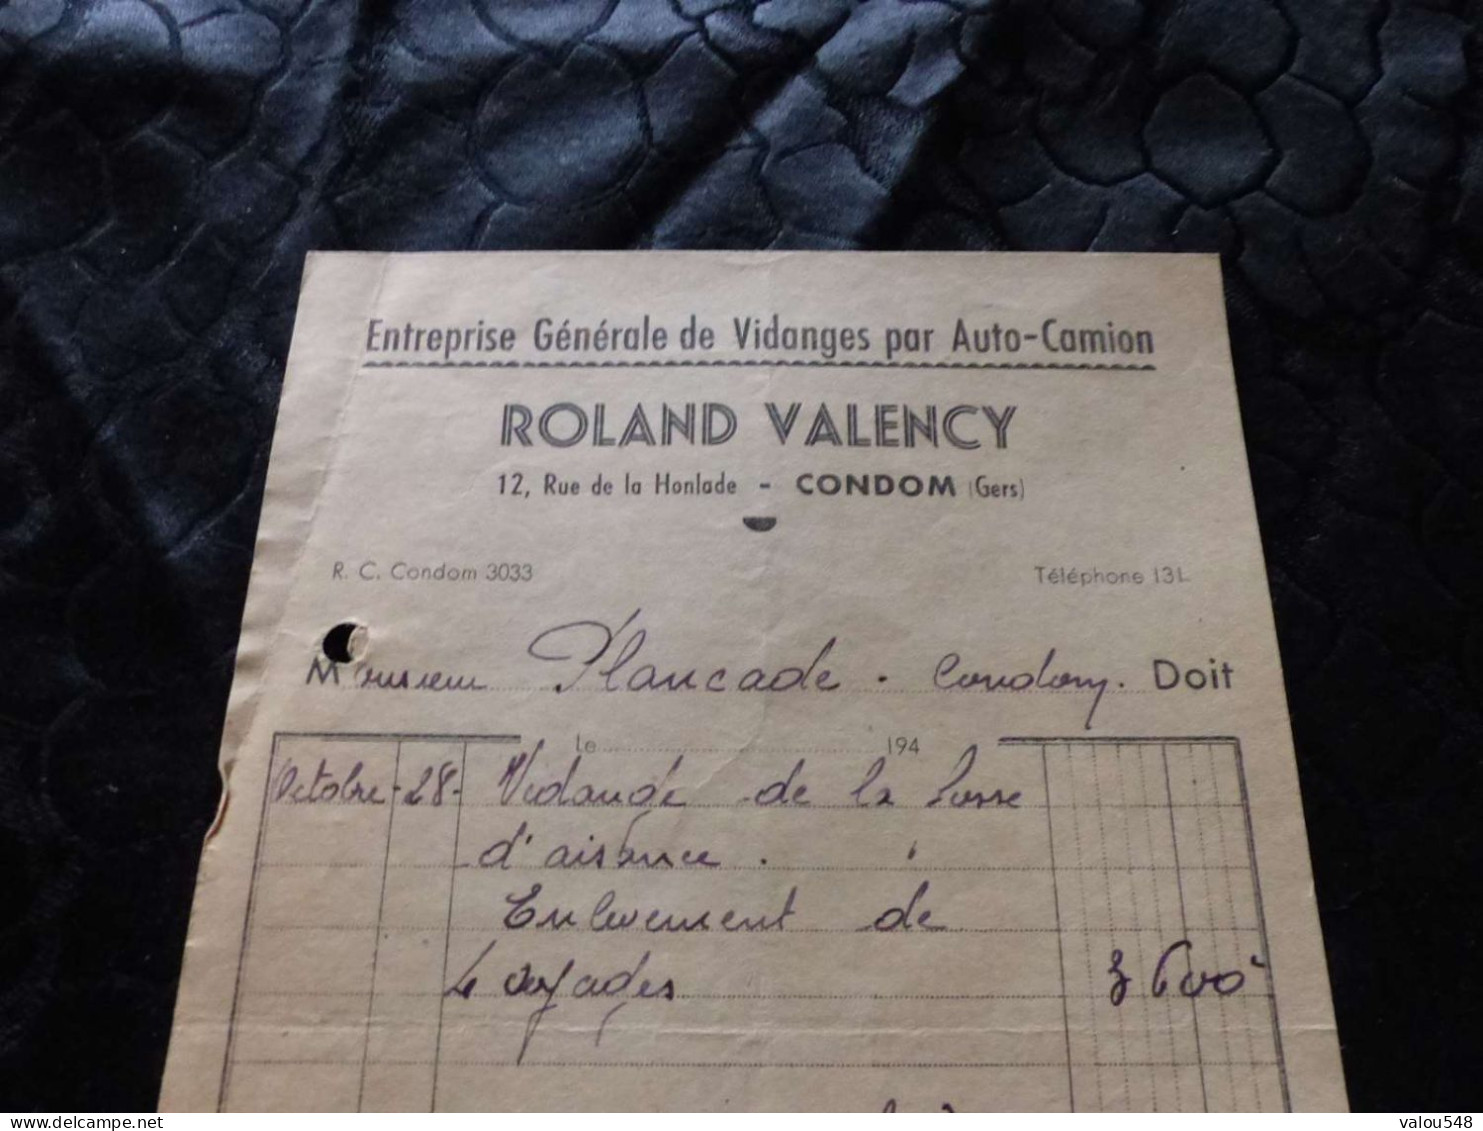 Entreprise Générale de Vidanges par Auto-Camion
ROLAND VALENCY
12, Rue de la Honlade - CONDOM (Gers)
R. C. Condom 3033 Téléphone 131
Monsieur Plancade. Condom. Doit
Le 194
Octobre - 28 - Vidange de la fosse
d'aisance.
Enlevement de
4 voyages 3600
valou548